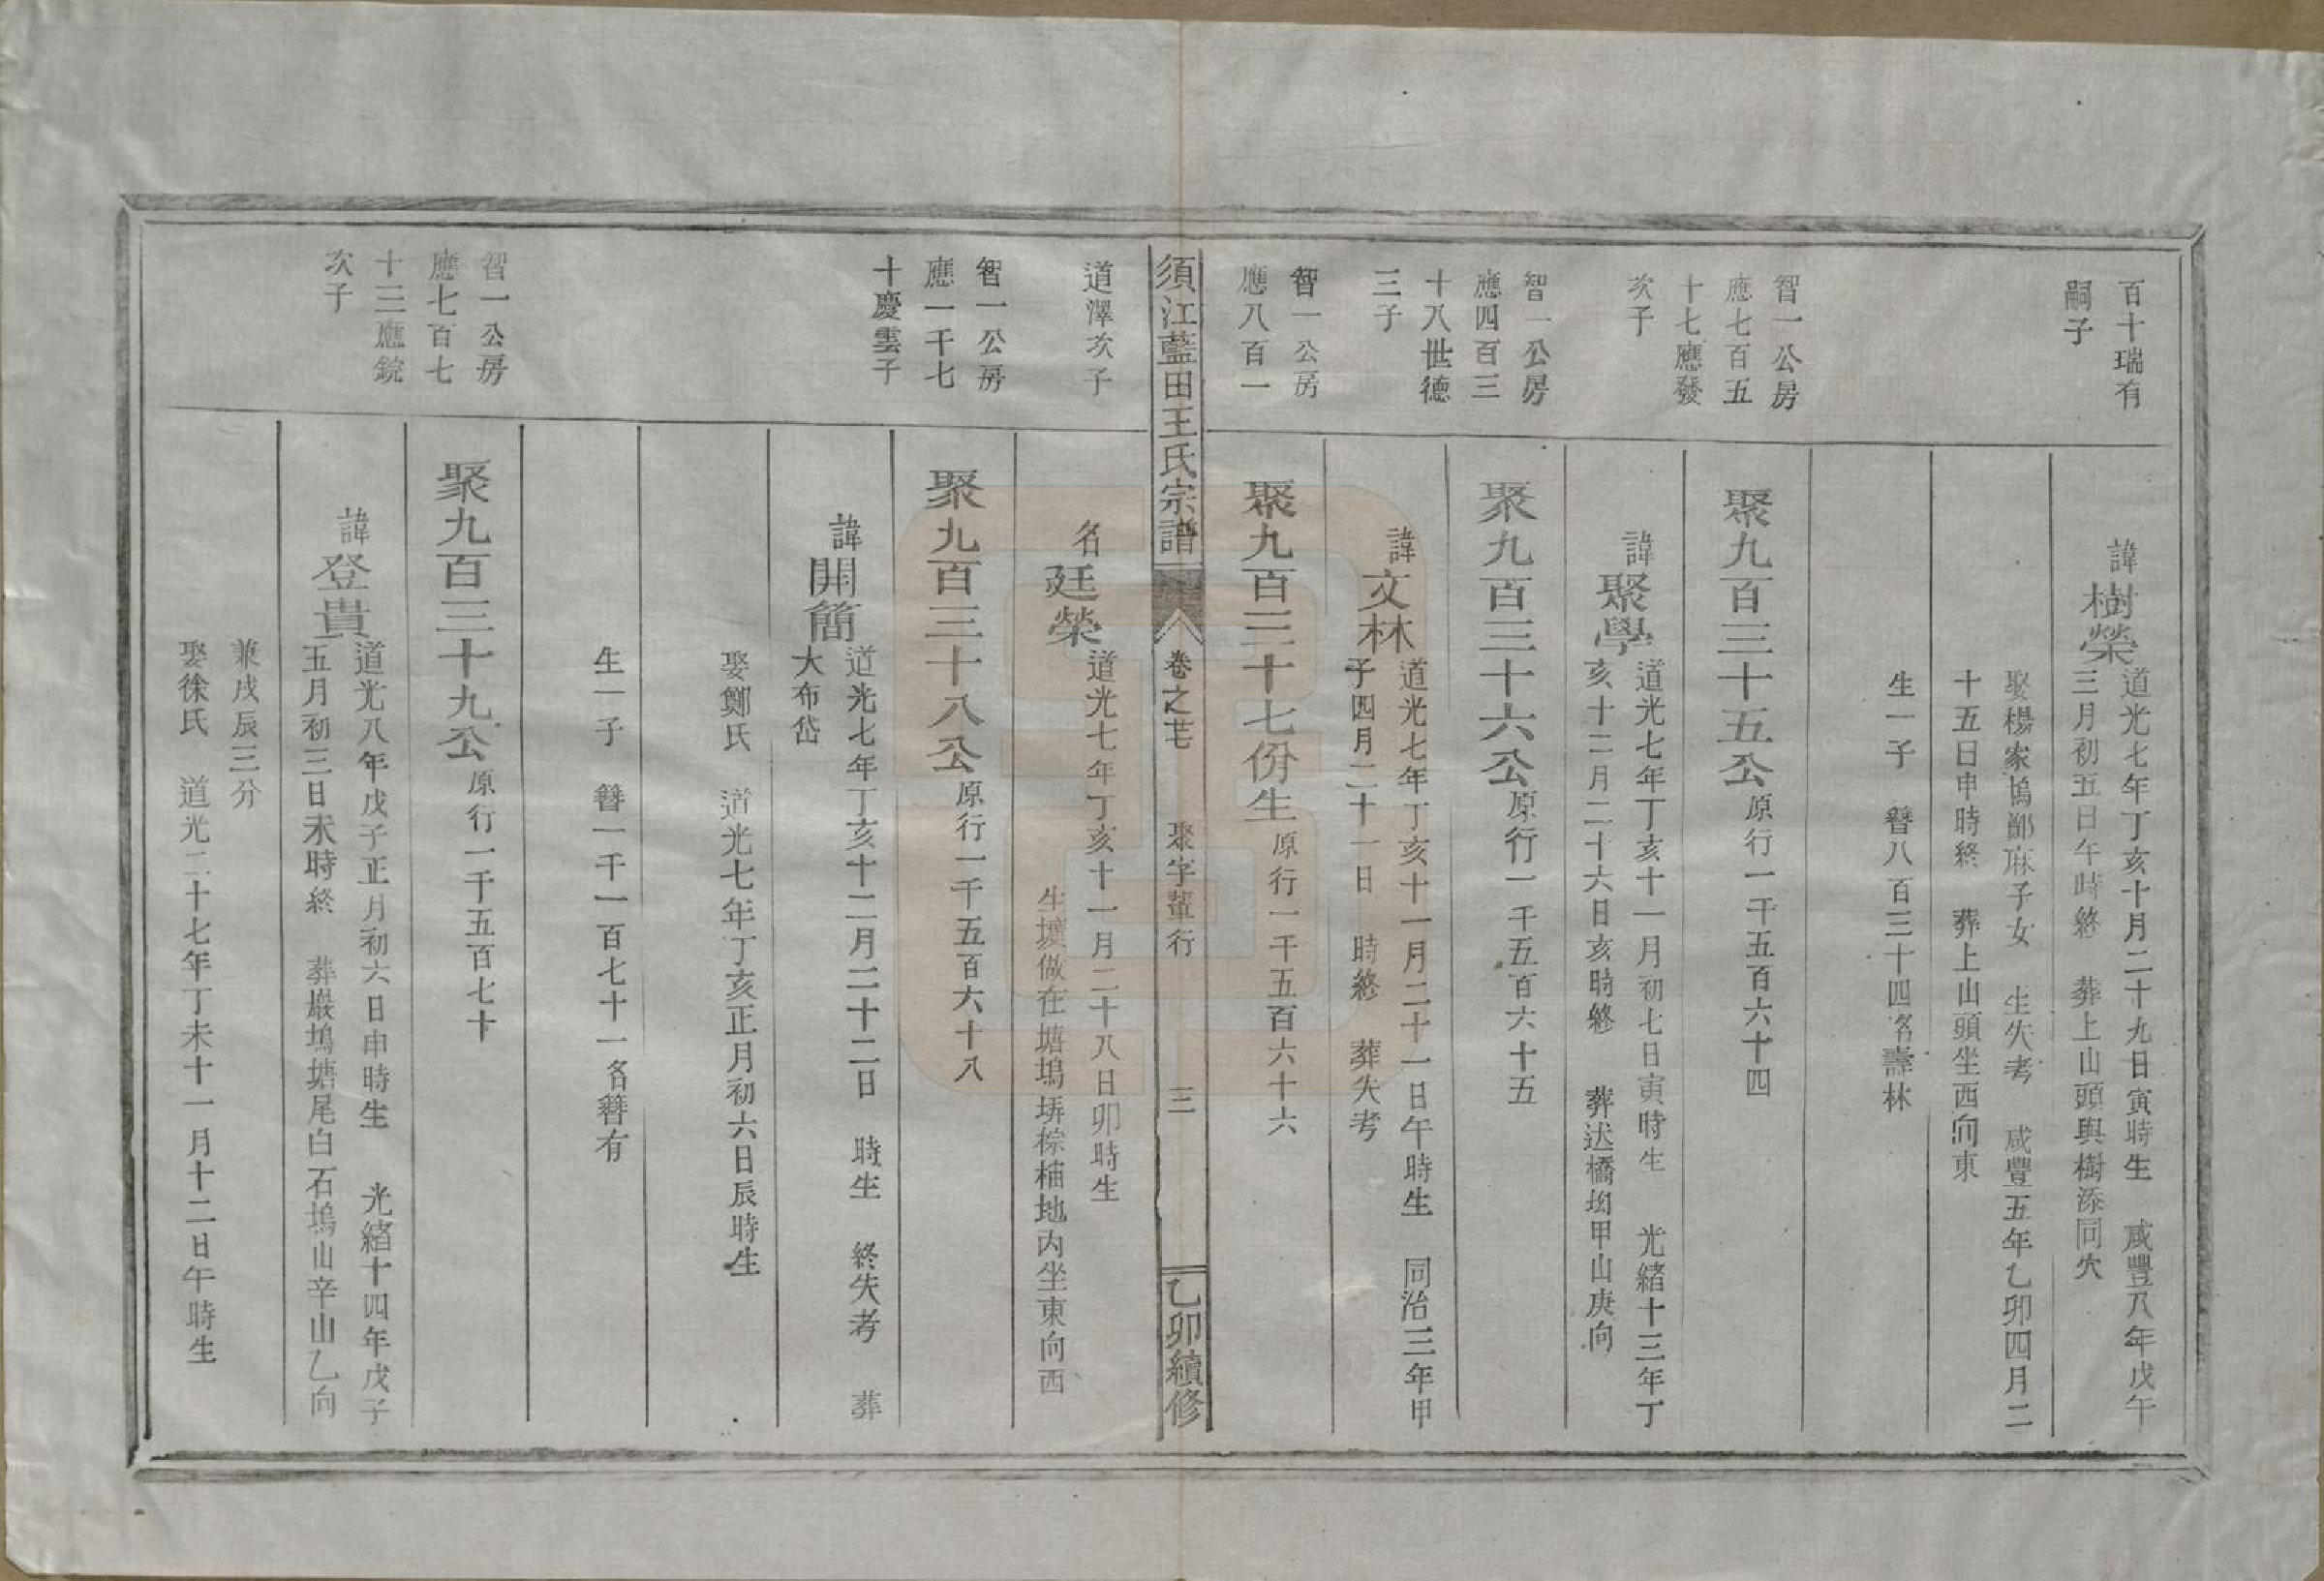 百十瑞有
嗣子
諱樹榮
道光七年丁亥十月二十九日寅時生 咸豐八年戊午
三月初五日午時終 葬上山頭與樹添同穴
娶楊家塢鄭麻子女 生失考 咸豐五年乙卯四月二
十五日申時終 葬上山頭坐西向東
生一子 簪八百三十四名壽林
智一公房
應七百五
十七應發
次子
聚九百三十五公 原行一千五百六十四
諱聚學
道光七年丁亥十一月初七日寅時生 光緒十三年丁
亥十二月二十六日亥時終 葬达橋坳甲山庚向
智一公房
應四百三
十八世德
三子
聚九百三十六公 原行一千五百六十五
諱文林
道光七年丁亥十一月二十一日午時生 同治三年甲
子四月二十一日 時終 葬失考
智一公房
應八百一
聚九百三十七份生 原行一千五百六十六
須江藍田王氏宗譜 卷之芼 聚字輩行 三 乙卯續修
道澤次子
名廷榮
道光七年丁亥十一月二十八日卯時生
生壙做在塘塢塝棕楠地内坐東向西
智一公房
應一千七
十慶雲子
聚九百三十八公 原行一千五百六十八
諱開簡
道光七年丁亥十二月二十二日 時生 終失考 葬
大布岱
娶鄭氏 道光七年丁亥正月初六日辰時生
生一子 簪一千一百七十一名簪有
智一公房
應七百七
十三應鏡
次子
聚九百三十九公 原行一千五百七十
諱登貴
道光八年戊子正月初六日申時生 光緒十四年戊子
五月初三日未時終 葬巖塢塘尾白石塢山辛山乙向
兼戌辰三分
娶徐氏 道光二十七年丁未十一月十二日午時生